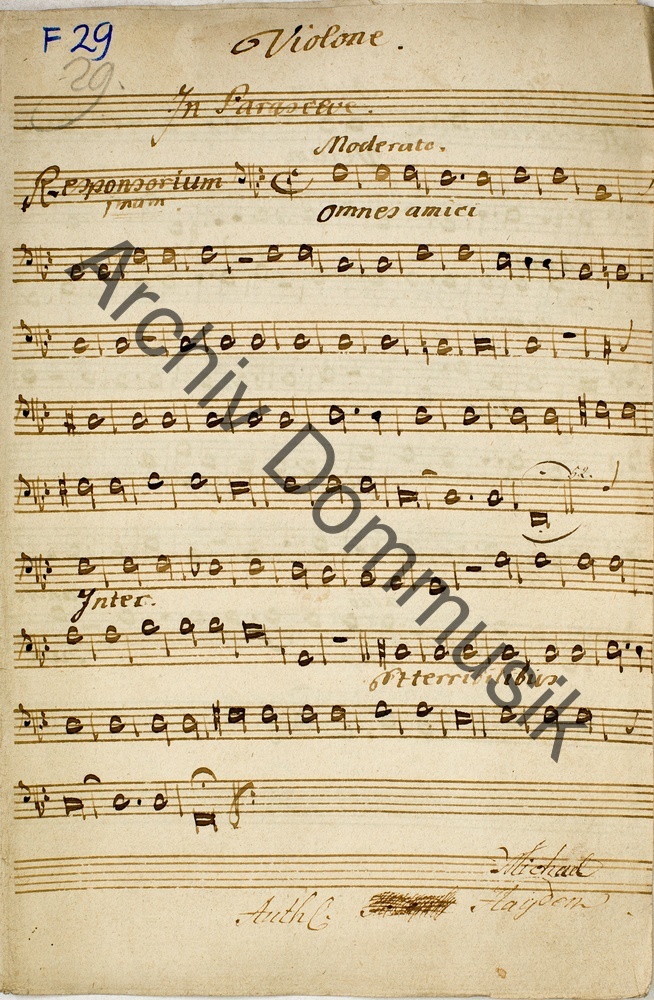 F 29
Violone.
29.
In Parasceve.
Moderato.
Responsorium
1mum.
Omnes amici
Inter.
et terribilibus
Michael
Auth C. Haydon
Archiv Dommusik